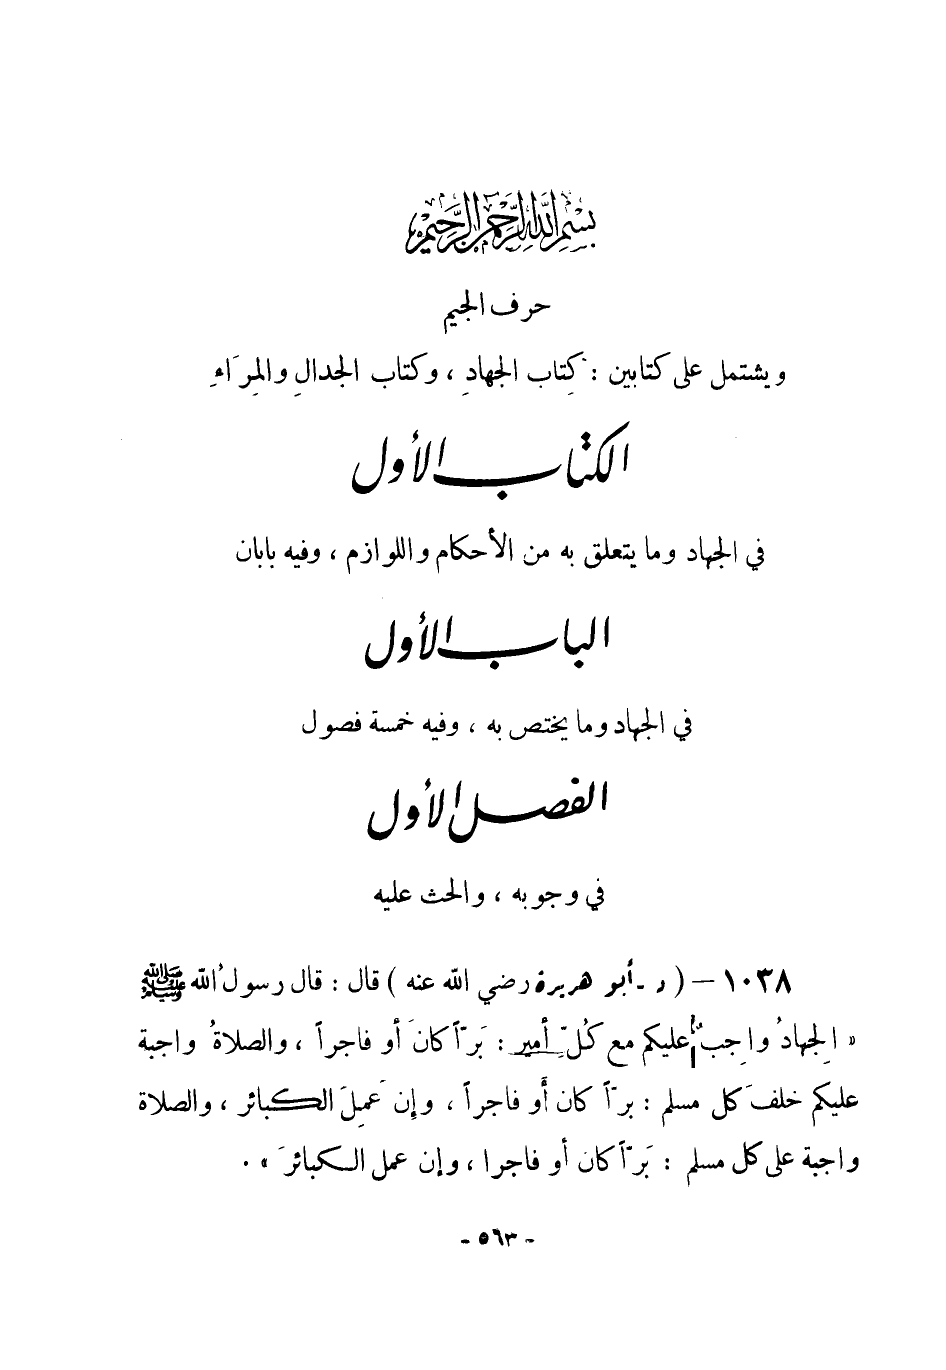 بسم الله الرحمن الرحيم
حرف الجيم
ويشتمل على كتابين : كِتاب الجهادِ ، وكتاب الجدالِ والمِرَاءِ
الكتاب الأول
في الجهاد وما يتعلق به من الأحكام واللوازم ، وفيه بابان
الباب الأول
في الجهاد وما يختص به ، وفيه خمسة فصول
الفصل الأول
في وجوبه ، والحث عليه
١٠٣٨ – ( د - أبو هريرة رضي الله عنه ) قال : قال رسولُ الله ﷺ
« الجِهادُ واجِبٌ عليكم مع كُلِّ أمير : بَرّاً كانَ أو فاجراً ، والصلاةُ واجبة
عليكم خلفَ كل مسلم : برّاً كان أَو فاجراً ، وإن عَمِلَ الكبائر ، والصلاة
واجبة على كل مسلم : بَرّاً كان أو فاجرا ، وإن عمل الكبائرَ » .
- ٥٦٣ -